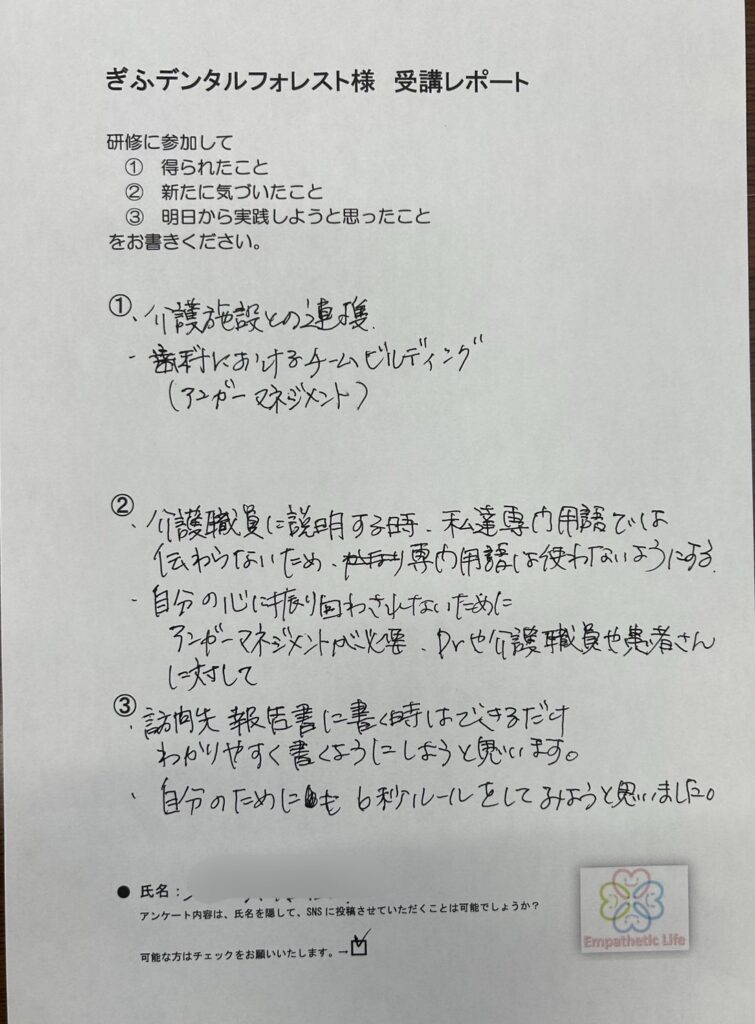 ぎふデンタルフォレスト様 受講レポート
研修に参加して
① 得られたこと
② 新たに気づいたこと
③ 明日から実践しようと思ったこと
をお書きください。
①・介護施設との連携
・歯科におけるチームビルディング
(アンガーマネジメント)
②・介護職員に説明する時、私達専門用語では
伝わらないため、専門用語は使わないようにする
・自分の心に振り回わされないために
アンガーマネジメントが必要、Drや介護職員や患者さん
に対して
③・訪問先報告書に書く時はできるだけ
わかりやすく書くようにしようと思います。
・自分のためにも6秒ルールをしてみようと思いました。
● 氏名:
アンケート内容は、氏名を隠して、SNSに投稿させていただくことは可能でしょうか?
可能な方はチェックをお願いいたします。→☑
Empathetic Life